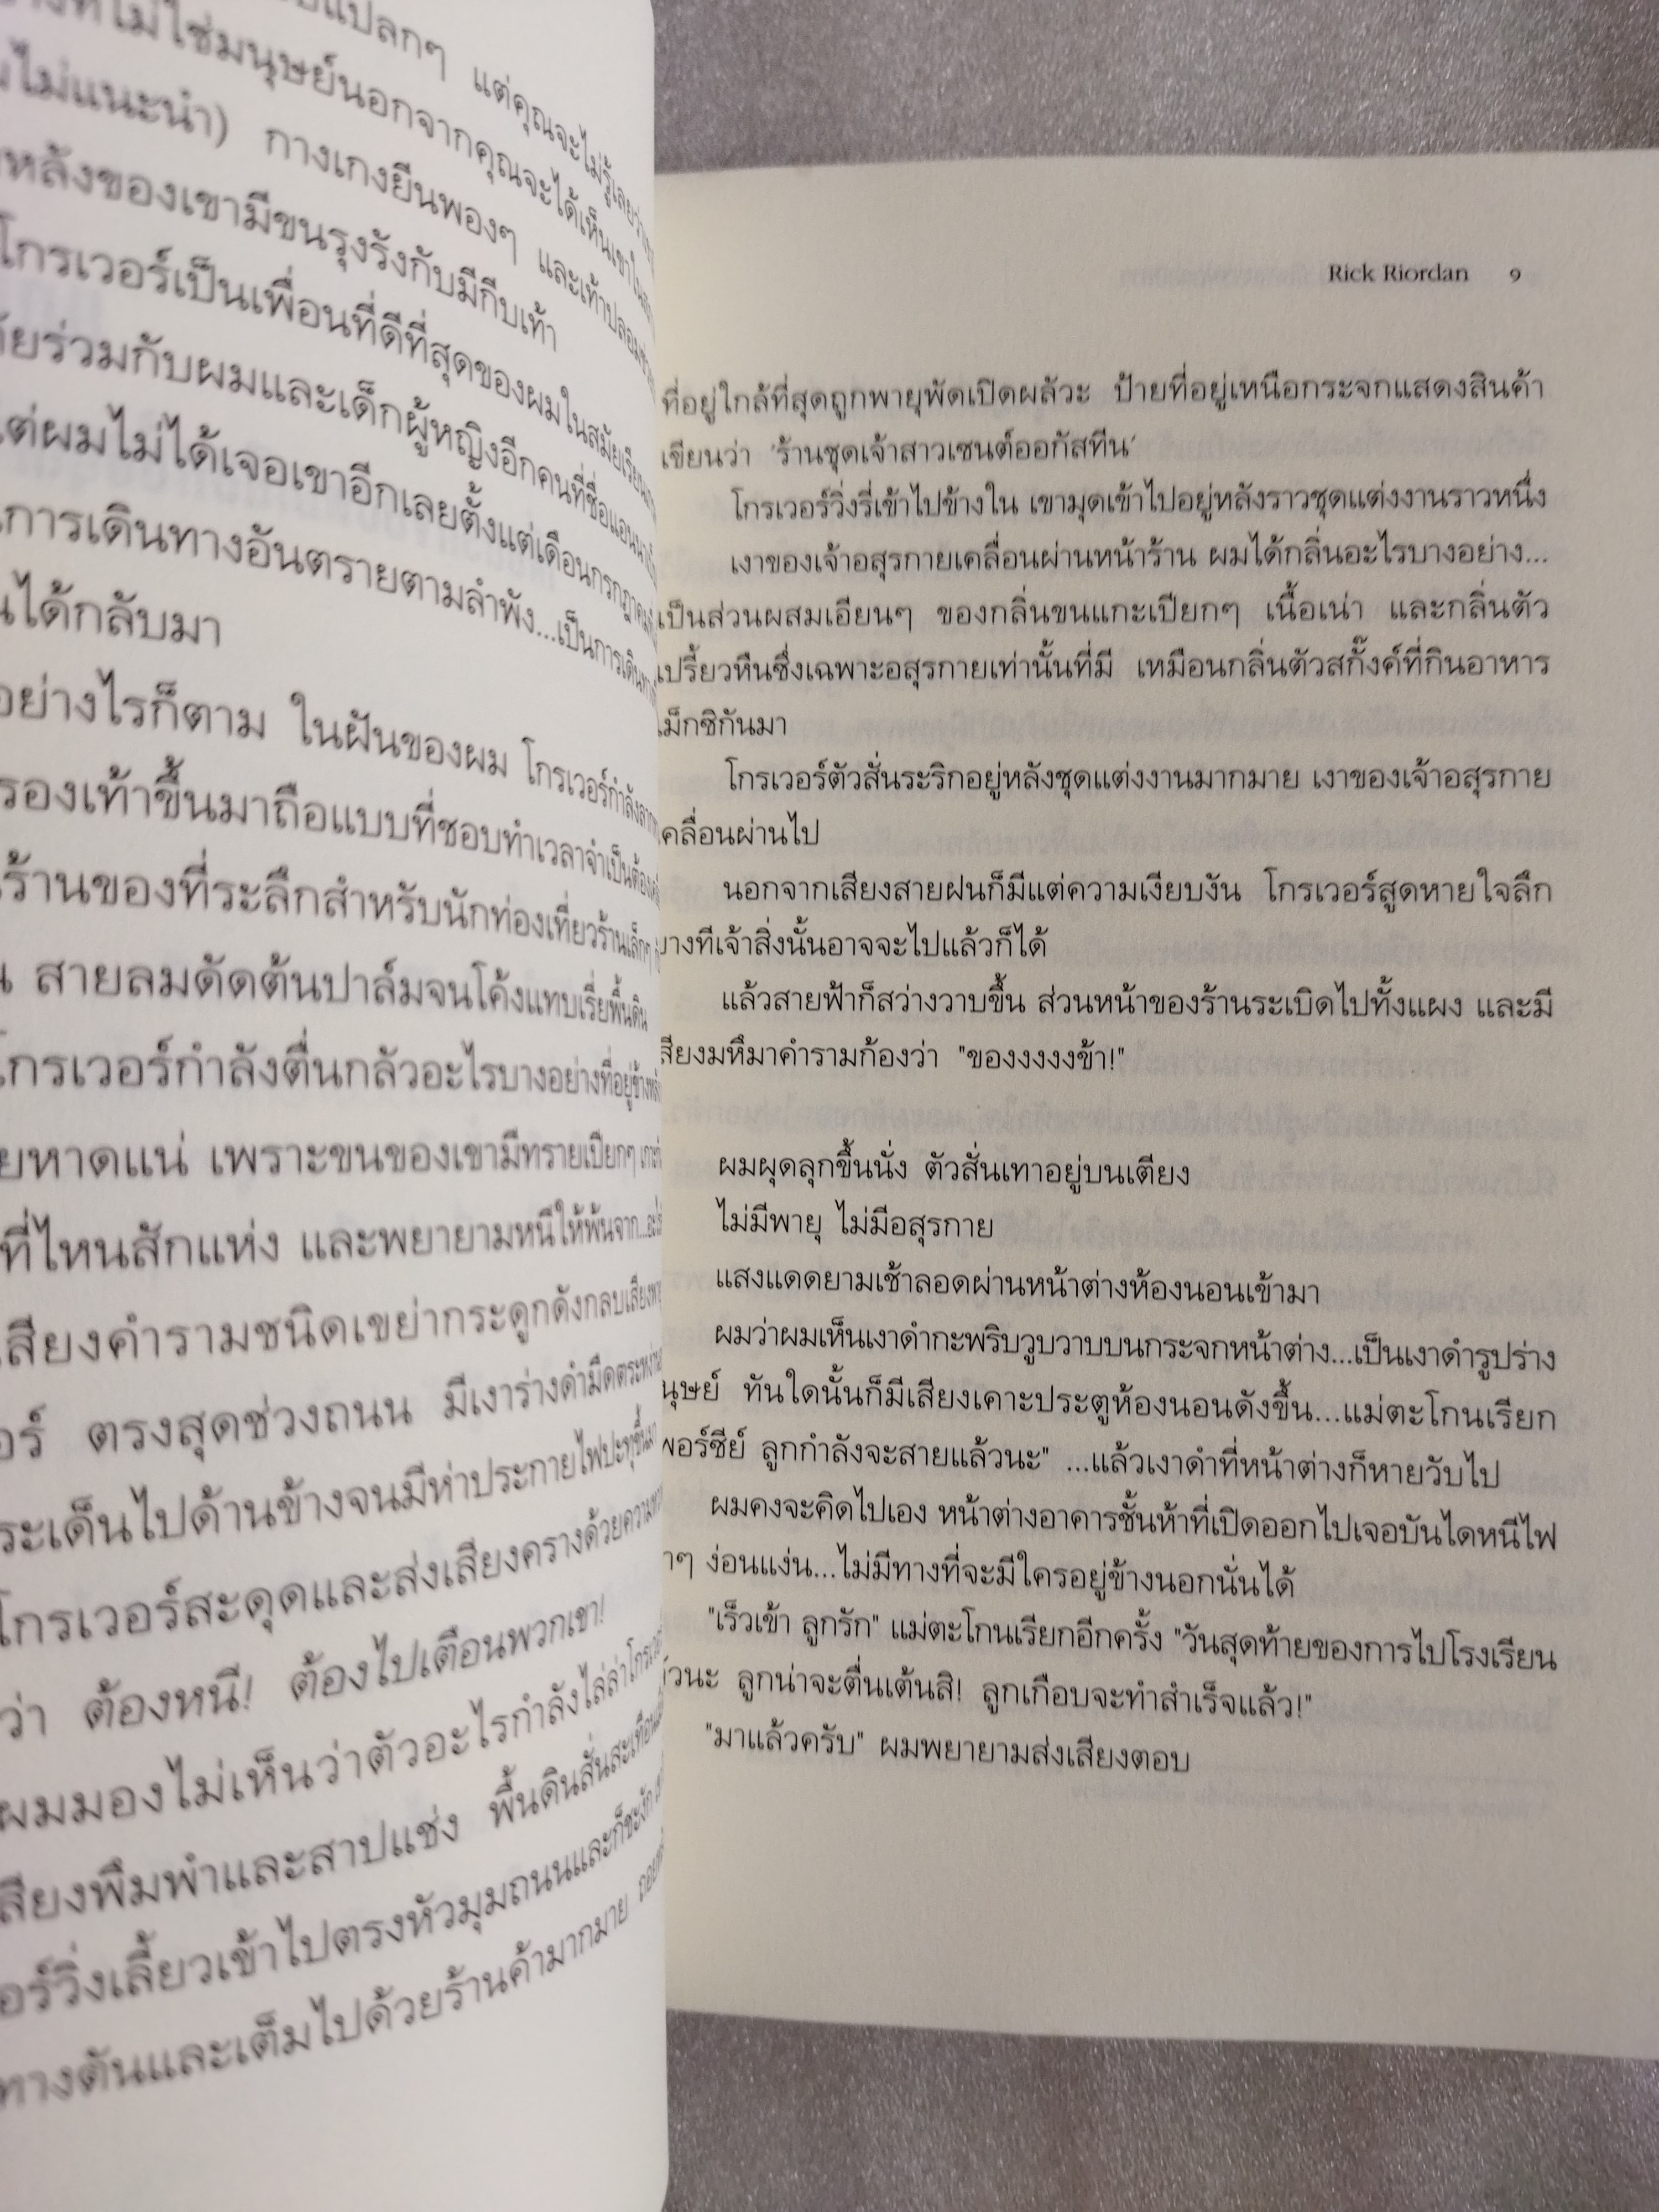 แปลกๆ แต่คุณจะไม่รู้เลยว่า
ที่ไม่ใช่มนุษย์นอกจากคุณจะได้เห็นเขาใน
ไม่แนะนำ) กางเกงยีนพองๆ และเท้าปลอม
หลังของเขามีขนรุงรังกับมีกีบเท้า
โกรเวอร์เป็นเพื่อนที่ดีที่สุดของผมในสมัยเรียน
ร่วมกับผมและเด็กผู้หญิงอีกคนที่ชื่อ
ผมไม่ได้เจอเขาอีกเลยตั้งแต่เดือนกรกฎาคม
การเดินทางอันตรายตามลำพัง...เป็นการเดิน
ได้กลับมา
อย่างไรก็ตาม ในฝันของผม โกรเวอร์กำลัง
รองเท้าขึ้นมาถือแบบที่ชอบทำเวลาจำเป็นต้อง
ร้านของที่ระลึกสำหรับนักท่องเที่ยวร้านเล็กๆ
สายลมดัดต้นปาล์มจนโค้งแทบเรี่ยพื้นดิน
โกรเวอร์กำลังตื่นกลัวอะไรบางอย่างที่อยู่ข้างหลัง
หาดแน่ เพราะขนของเขามีทรายเปียกๆ
ที่ไหนสักแห่ง และพยายามหนีให้พ้นจาก...
เสียงคำรามชนิดเขย่ากระดูกดังกลบเสียง
ตรงสุดช่วงถนน มีเงาร่างดำมืดตระหง่าน
กระเด็นไปด้านข้างจนมีห่าประกายไฟปะทุขึ้นมา
โกรเวอร์สะดุดและส่งเสียงครางด้วยความ
ว่า ต้องหนี! ต้องไปเตือนพวกเขา!
ผมมองไม่เห็นว่าตัวอะไรกำลังไล่ล่าโกรเวอร์
เสียงพึมพำและสาปแช่ง พื้นดินสั่นสะเทือน
วิ่งเลี้ยวเข้าไปตรงหัวมุมถนนและก็ชะงัก
ทางตันและเต็มไปด้วยร้านค้ามากมาย
Rick Riordan 9
ที่อยู่ใกล้ที่สุดถูกพายุพัดเปิดผลัวะ ป้ายที่อยู่เหนือกระจกแสดงสินค้า
เขียนว่า ‘ร้านชุดเจ้าสาวเซนต์ออกัสทีน’
โกรเวอร์วิ่งรี่เข้าไปข้างใน เขามุดเข้าไปอยู่หลังราวชุดแต่งงานราวหนึ่ง
เงาของเจ้าอสุรกายเคลื่อนผ่านหน้าร้าน ผมได้กลิ่นอะไรบางอย่าง...
เป็นส่วนผสมเอียนๆ ของกลิ่นขนแกะเปียกๆ เนื้อเน่า และกลิ่นตัว
เปรี้ยวหืนซึ่งเฉพาะอสุรกายเท่านั้นที่มี เหมือนกลิ่นตัวสกั๊งค์ที่กินอาหาร
เม็กซิกันมา
โกรเวอร์ตัวสั่นระริกอยู่หลังชุดแต่งงานมากมาย เงาของเจ้าอสุรกาย
เคลื่อนผ่านไป
นอกจากเสียงสายฝนก็มีแต่ความเงียบงัน โกรเวอร์สูดหายใจลึก
บางทีเจ้าสิ่งนั้นอาจจะไปแล้วก็ได้
แล้วสายฟ้าก็สว่างวาบขึ้น ส่วนหน้าของร้านระเบิดไปทั้งแผง และมี
เสียงมหึมาคำรามก้องว่า "ของงงงงข้า!"
ผมผุดลุกขึ้นนั่ง ตัวสั่นเทาอยู่บนเตียง
ไม่มีพายุ ไม่มีอสุรกาย
แสงแดดยามเช้าลอดผ่านหน้าต่างห้องนอนเข้ามา
ผมว่าผมเห็นเงาดำกะพริบวูบวาบบนกระจกหน้าต่าง...เป็นเงาดำรูปร่าง
นุษย์ ทันใดนั้นก็มีเสียงเคาะประตูห้องนอนดังขึ้น...แม่ตะโกนเรียก
พอร์ซีย์ ลูกกำลังจะสายแล้วนะ" ...แล้วเงาดำที่หน้าต่างก็หายวับไป
ผมคงจะคิดไปเอง หน้าต่างอาคารชั้นห้าที่เปิดออกไปเจอบันไดหนีไฟ
าๆ ง่อนแง่น...ไม่มีทางที่จะมีใครอยู่ข้างนอกนั่นได้
"เร็วเข้า ลูกรัก" แม่ตะโกนเรียกอีกครั้ง "วันสุดท้ายของการไปโรงเรียน
้วนะ ลูกน่าจะตื่นเต้นสิ! ลูกเกือบจะทำสำเร็จแล้ว!"
"มาแล้วครับ" ผมพยายามส่งเสียงตอบ